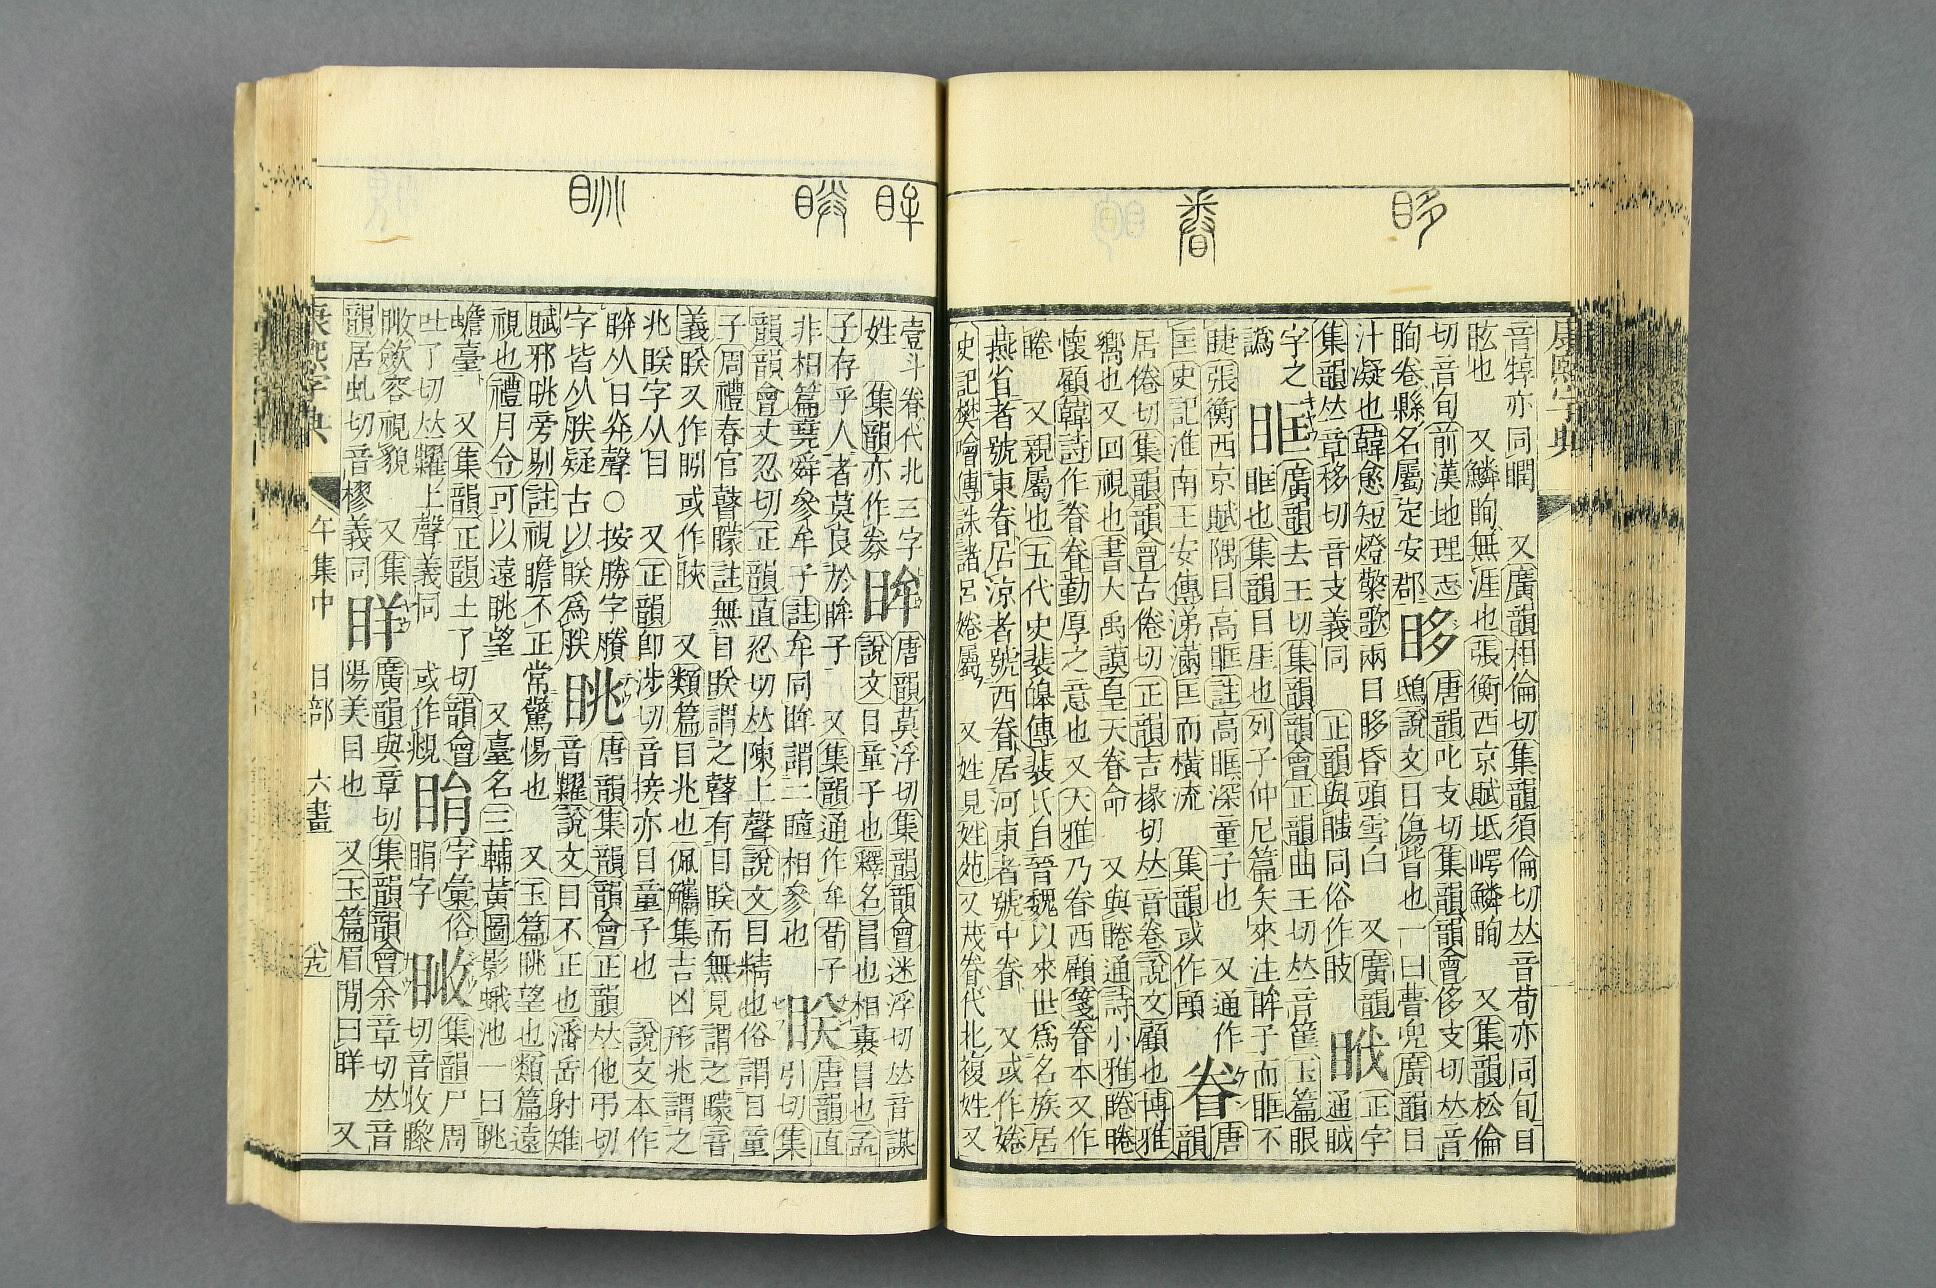 眵
眷
眸
眹
眺
康熙字典
音犉亦同瞤 又廣韻相倫切集韻須倫切𠀤音荀亦同旬目
眩也 又鱗眴無涯也張衡西京賦坻崿鱗眴 又集韻松倫
切音旬前漢地理志
眴卷縣名屬定安郡
眵
唐韻叱支切集韻韻會侈支切𠀤音
鴟說文目傷眥也一曰瞢兜廣韻目
汁凝也韓愈短燈檠歌兩目眵昏頭雪白 又廣韻
集韻𠀤章移切音支義同 正韻與䁾同俗作
眓
正字
通眓
字之
譌
眶
廣韻去王切集韻韻會正韻曲王切𠀤音筐玉篇眼
眶也集韻目厓也列子仲尼篇矢來注眸子而眶不
睫張衡西京賦隅目高眶註高眶深童子也 又通作
匡史記淮南王安傳涕滿匡而橫流 集韻或作
眷
唐
韻
居倦切集韻韻會古倦切正韻吉掾切𠀤音卷說文顧也博雅
嚮也又回視也書大禹謨皇天眷命 又與睠通詩小雅睠睠
懷顧韓詩作眷眷勤厚之意也又大雅乃眷西顧箋眷本又作
睠 又親屬也五代史裴皞傳裴氏自晉魏以來世爲名族居
燕省者號東眷居涼者號西眷居河東者號中眷 又或作婘
史記樊噲傳誅諸呂婘屬 又姓見姓苑又茂眷代北複姓又
壹斗眷代北三字
姓 集韻亦作
眸
唐韻莫浮切集韻韻會迷浮切𠀤音謀
說文目童子也釋名冒也相裹冒也孟
子存乎人者莫良於眸子 又集韻通作牟荀子
非相篇堯舜參牟子註牟同眸謂二瞳相參也
眹
唐韻直
引切集
韻韻會丈忍切正韻直忍切𠀤陳上聲說文目精也俗謂目童
子周禮春官瞽矇註無目眹謂之瞽有目眹而無見謂之矇音
義眹又作䀢或作䀹 又類篇目兆也佩觿集吉凶形兆謂之
兆眹字从目 又正韻卽涉切音接亦目童子也 說文本作
从目灷聲○按勝字賸
字皆从朕疑古以眹爲朕
眺
唐韻集韻韻會正韻𠀤他弔切
音糶說文目不正也潘岳射雉
賦邪眺旁剔註視瞻不正常驚惕也 又玉篇眺望也類篇遠
視也禮月令可以遠眺望 又臺名三輔黃圖影蛾池一曰眺
蟾臺 又集韻正韻土了切韻會
吐了切𠀤糶上聲義同 或作覜
字彙俗
睊字
集韻尸周
切音收瞭
歛容視貌 又集
韻居虬切音樛義同
眻
廣韻與章切集韻韻會余章切𠀤音
陽美目也 又玉篇眉閒曰眻 又
康熙字典 午集中 目部 六畫 八九